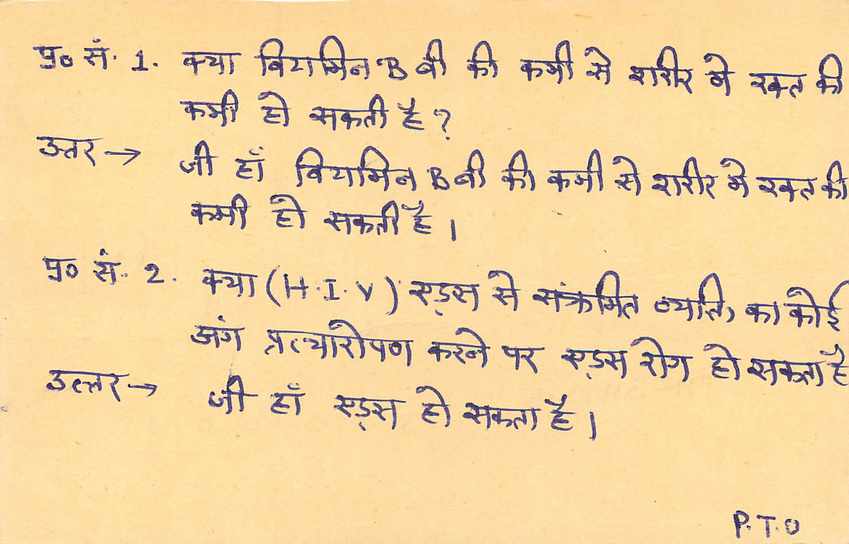 प्र० सं. 1. क्या विटामिन B बी की कमी से शरीर मे रक्त की
कमी हो सकती है ?
उत्तर → जी हाँ विटामिन B बी की कमी से शरीर मे रक्त की
कमी हो सकती है ।
प्र० सं. 2. क्या (H.I.V) एड्स से संक्रमित व्यक्ति का कोई
अंग प्रत्यारोपण करने पर एड्स रोग हो सकता है
उत्तर → जी हाँ एड्स हो सकता है ।
P.T.O